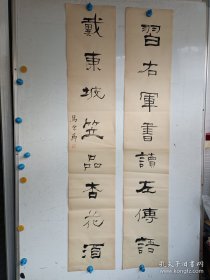 習右軍書讀左傳語
戴東坡笠品杏花酒